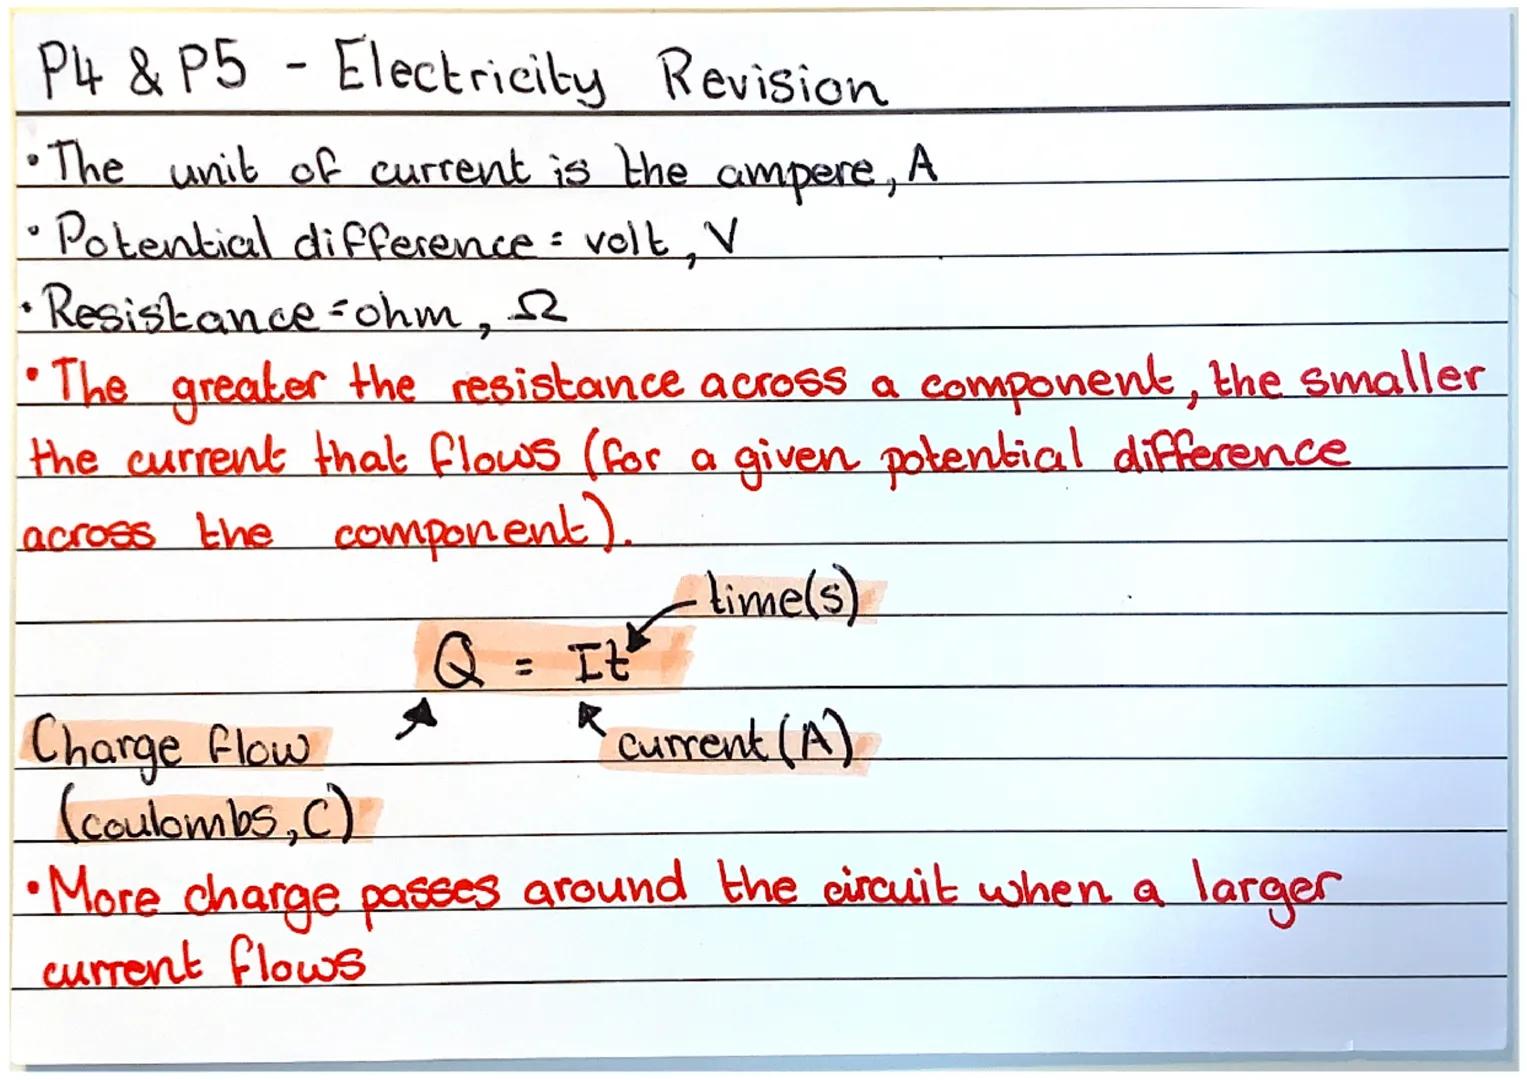 P4 & P5 - Electricity Revision
• The unit of current is the ampere, A
• Potential difference = volt, V
• Resistance = ohm, Ω
• The greater the resistance across a component, the smaller
the current that flows (for a given potential difference
across the component).
time(s)
Q = It
Charge flow
current (A)
(coulombs, C)
• More charge passes around the circuit when a larger
current flows